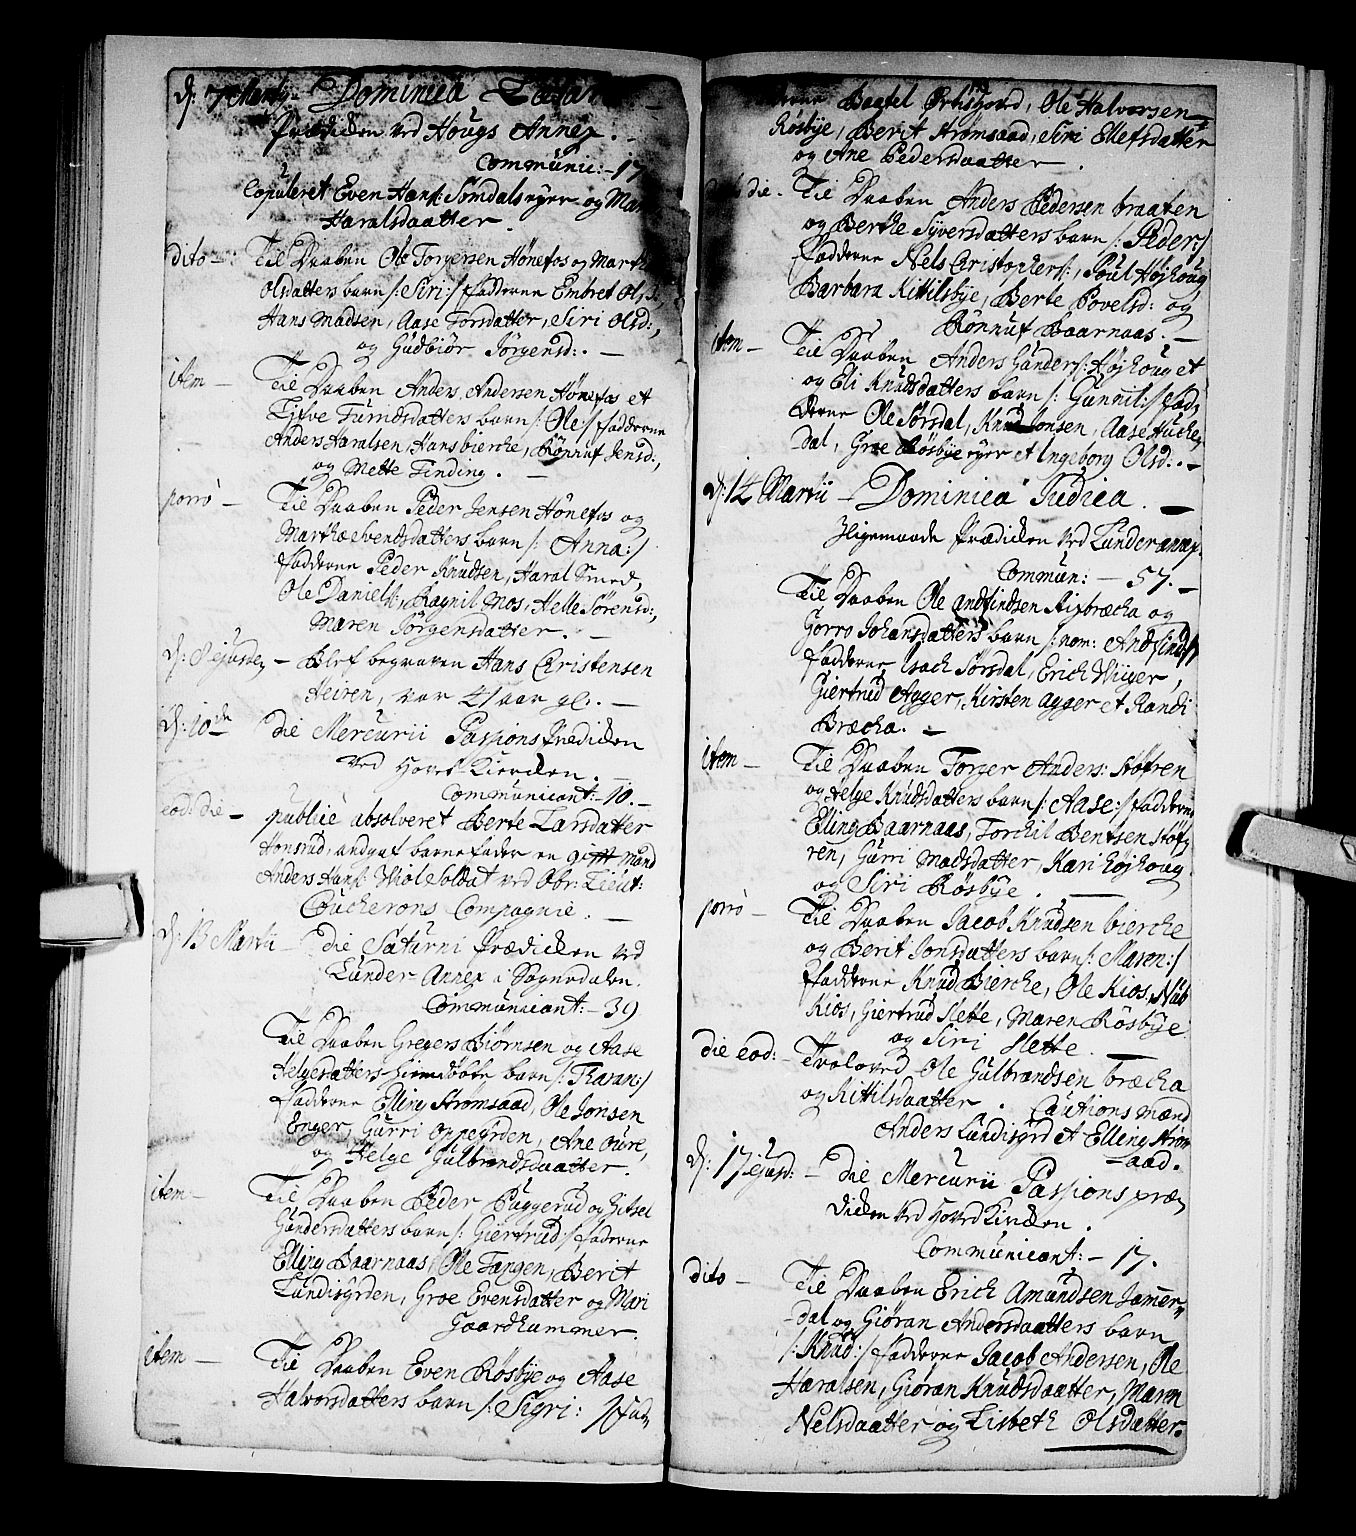 d: 7 Martij - Dominica
Prædiken ved Hougs Annex.
Communic: - 17
Copuleret Even Hans: Sømdals eyer og Mar
Haralsdaatter.
dito - Til Daaben Ole Torgersen Hønefos og Marth
Olsdatters barn /: Siri :/ fadderne Embret Ols
Hans Madsen, Aase Torsdatter, Siri Olsd:,
og Gudbiør Jørgensd:. -
item - Til Daaben Anders Andersen Hønefos et
Turridsdatters barn /: Ole :/ fadderne
Anders Haralsen, Hans bierche, Rønnuf Jensd:,
og Mette Finding. -
porro - Til Daaben Peder Jensen Hønefos og
Marthe Evendsdatters barn /: Anna :/
fadderne Peder Knudsen, Haral Smed,
Ole Daniels:, Ragnil Mos, Helle Sørensd:,
Maren Jørgensdatter. -
d: 8 ejusd - Blef begraven Hans Christensen
Heiren, var 41 aar gl. -
d: 10de Die Mercurii Passions Prediken
ved Hoved Kircken. -
Communicant: - 10. -
eod: die - publicè absolveret Berte Larsdatter
Hønsrud, udgaf barnefader en gift Mand
Anders Hans: Soldat ved Obr: Lieut:
Coucherons Compagnie. -
d: 13 Martii - Die Saturni Prædiken ved
Lunder Annex i Sognedalen.
Communicant: - 39
Til Daaben Gregers Biørnsen og Aase
Helgesdatters barn /: Karan :/
fadderne Elling Strømsaad, Ole Jonsen
Enger, Gurri Oppegrden, Ane Oure,
og Helge Gulbrandsdaatter.
item - Til Daaben Peder Puggerud og Kitsel
Gundersdatters barn /: Giertrud :/ faderne
Elling Baarnaas, Ole Tangen, Berit
Lundisgrden, Groe Evensdatter og Mari
Gaardhammer.
item - Til Daaben Even Røsbye og Aase
Halvorsdatters barn /: Sigri: / fad
derne Baatel Ole Halvorsen
Røsbye, Berit Strømsaad, Siri Ellefsdatter
og Ane Pedersdaatter.
die - Til Daaben Anders Pedersen braaten
og Berthe Syversdatters barn /: Peder :/
fadderne Nels Christophers:, Poul Højhoug
Barbara Kittilsbye, Berte Povelsd: og
Rønnuf Baarnaas. -
item - Til Daaben Anders Gunders: Højhoug et
og Eli Knudsdatters barn /: Gunnil :/ fad
derne Ole Sørsdal, Knud Jonsen, Aase Hucke
dal, Groe Røsbye eyer et Ingeborg Olsd:. -
d: 14 Martii - Dominica Judica. -
Iligemaade Prædiken ved Lunder annex.
Commun: - 57. -
Til Daaben Ole Andfindsen bræcka og
Gorro Johansdatters barn /: nom: Andfind :/
fadderne Isach Sørsdal, Erich Wiiger,
Giertrud Agger, Kirsten Agger et Randi
Bræcka. -
item - Til Daaben Torger Anders: Støfren
og Helge Knudsdatters barn /: Aase :/ fadderne
Elling Baarnaas, Torchil Bentsen støf
ren, Gurri Madsdatter, Kari Højhoug
og Siri Røsbye.
porrò - Til Daaben Jacob Knudsen bierche
og Berit Jonsdatters barn /: Maren :/
fadderne Knud Bierche, Ole Kios,
Kios, Giertrud Slette, Maren Røsbye
og Siri Slette.
die eod: - Troloved Ole Gulbrandsen bræcka
og Kittilsdaatter. Cautions mænd
Anders Lundisgrd et Elling Strøm
saad.
d: 17 ejusd: - Die Mercurii Passions præ
diken ved Hoved Kircken.
Communicant: - 17.
dito - Til Daaben Erich Amundsen Somer
dal og Giøran Andersdaatters barn
/: Knud :/ fadderne Jacob Andersen, Ole
Haralsen, Giøran Knudsdaatter, Maren
Nelsdaatter og Lisbeth Olsdatter.